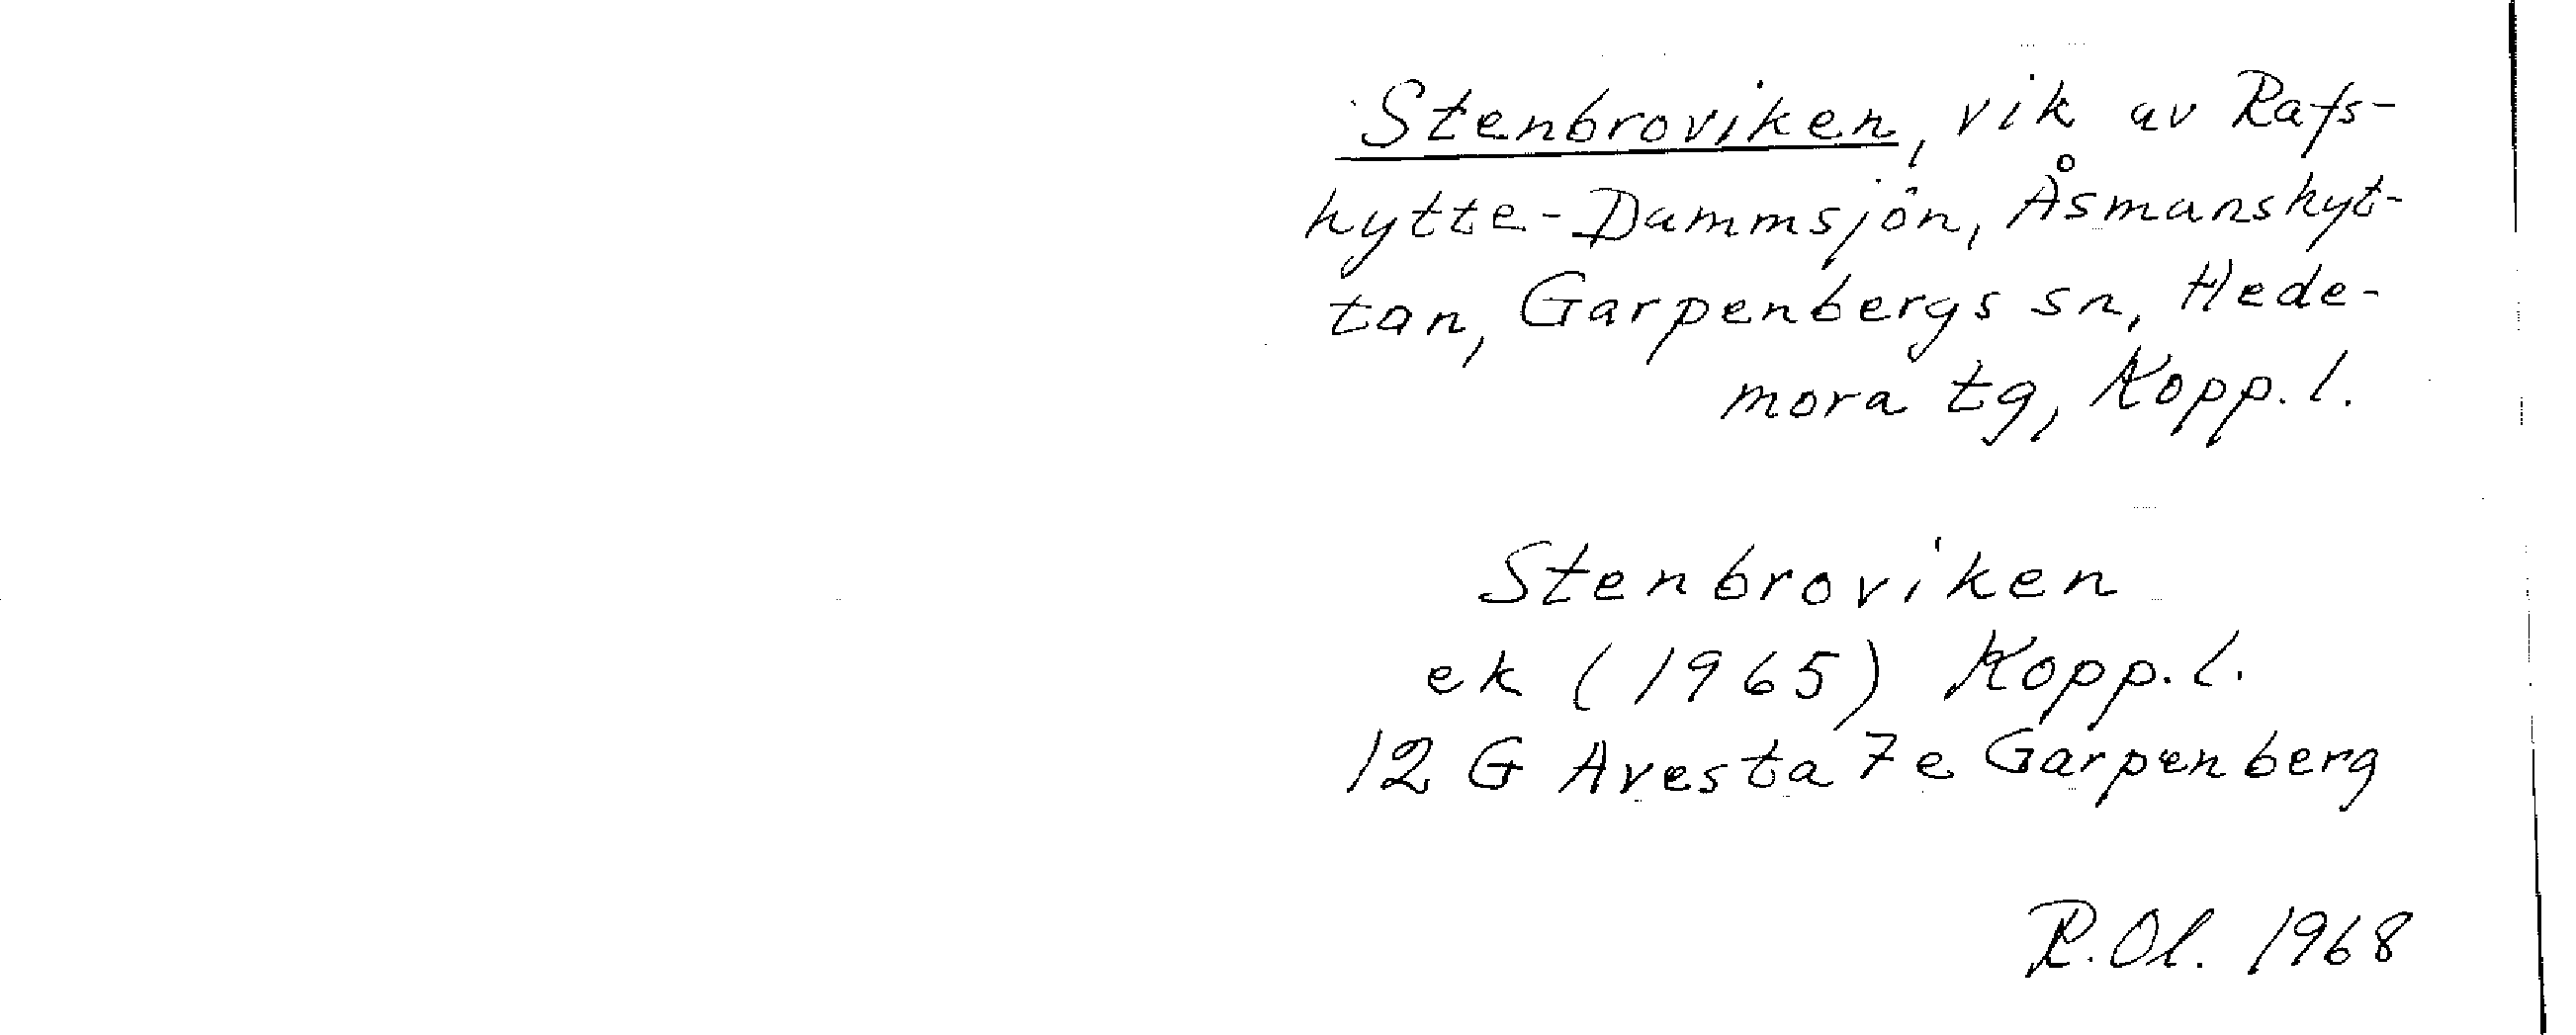 Stenbroviken, vik av Rafs-
hytte-Dammsjön, Åsmanshyt-
tan, Garpenbergs sn, Hede-
mora tg, Kopp. l.
Stenbroviken
ek (1965) Kopp. l.
12 G Avesta 7 e Garpenberg
R. Ol. 1968